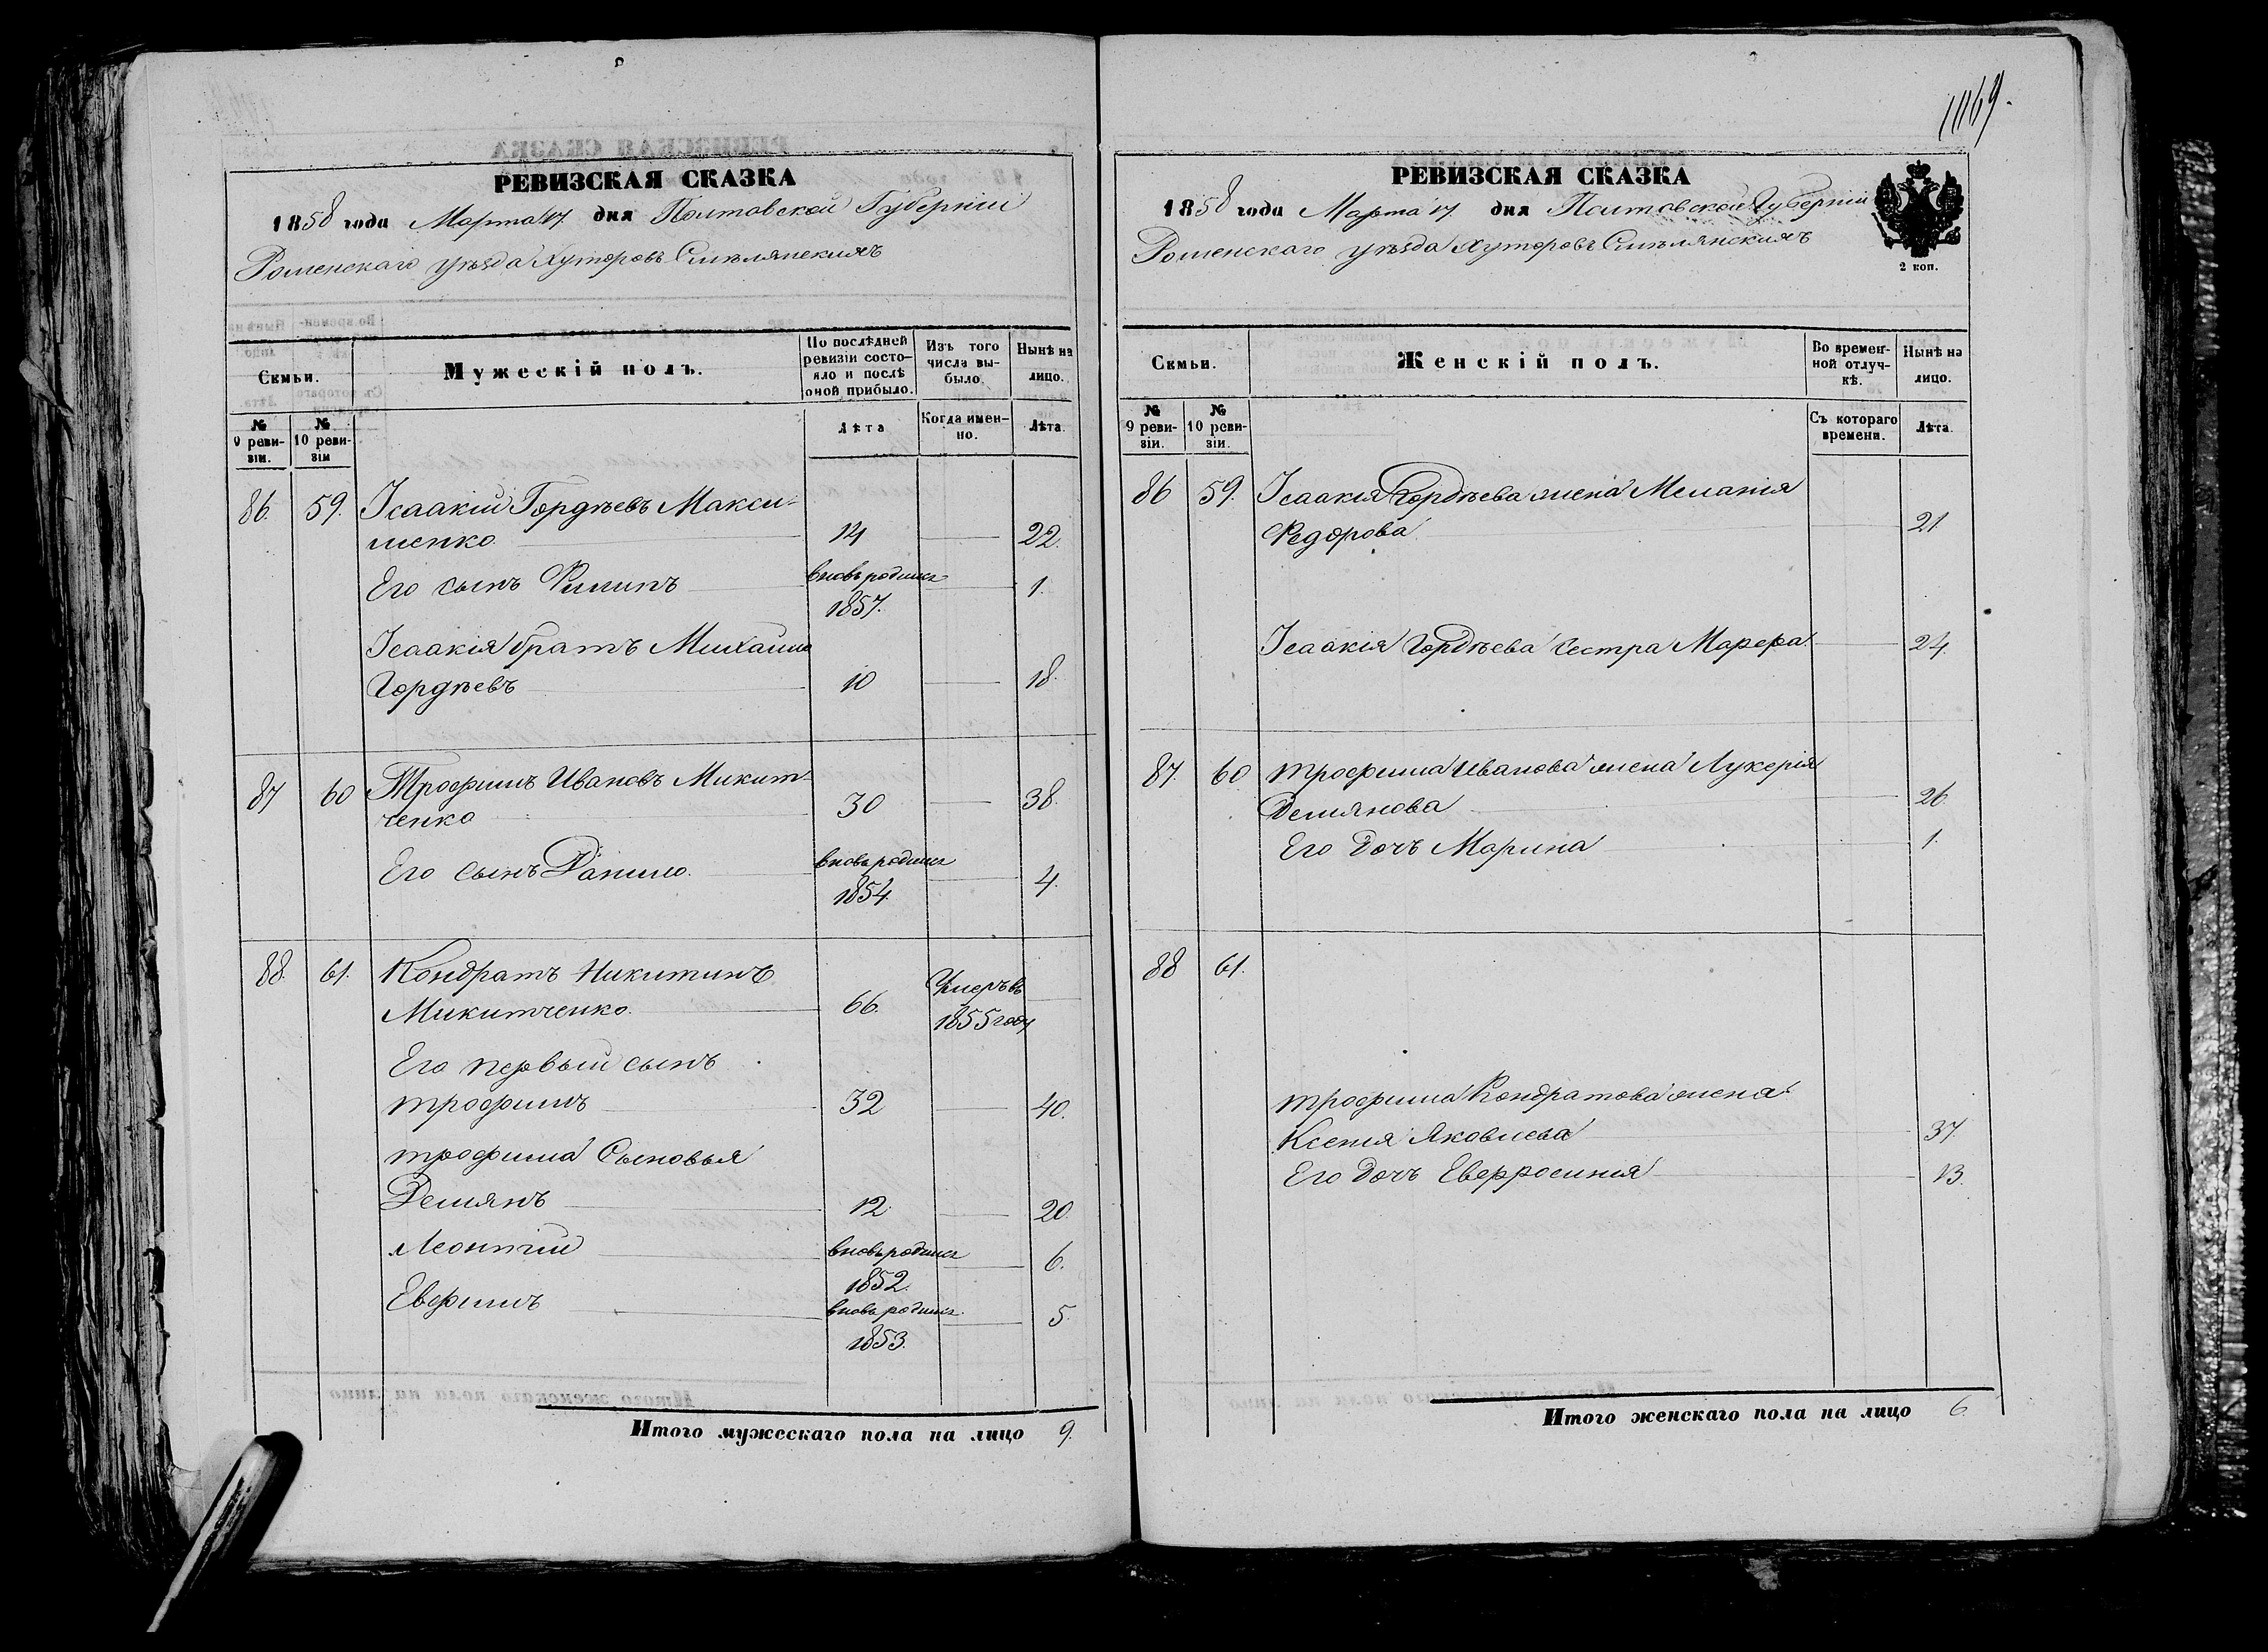 1169.
РЕВИЗСКАЯ СКАЗКА
1858 года Марта 17 дня Полтавской Губерніи
Роменскаго уѣзда Хуторовъ Смѣлянскихъ
Семьи.
Мужескій полъ.
По послѣдней ревизіи состояло и послѣ оной прибыло.
Изъ того числа выбыло.
Нынѣ на лицо.
№ 9 ревизіи.
№ 10 ревизіи
Лѣта
Когда именно.
Лѣта.
86. 59. Исаакій Гордѣевъ Макси-
менко 14 22.
Его сынъ Филипъ вновь родился 1.
1857.
Исаакія братъ Михаило
Гордѣевъ 10 18.
87 60 Трофимъ Ивановъ Микит-
ченко 30 38.
Его сынъ Данило. вновь родился 4.
1854.
88. 61. Кондратъ Никитинъ
Микитченко. 66. Умеръ въ
1855 году
Его первый сынъ
трофимъ 32 40.
трофима Сыновья
Демянъ 12. 20.
Леонтій вновь родился 6.
1852.
Евфимъ вновь родился 5.
1853.
Итого мужескаго пола на лицо 9.
РЕВИЗСКАЯ СКАЗКА
1858 года Марта 17 дня Полтавской Губерніи
Роменскаго уѣзда Хуторовъ Смѣлянскихъ
2 коп.
Семьи.
Женскій полъ.
Во временной отлучкѣ.
Нынѣ на лицо.
№ 9 ревизіи.
№ 10 ревизіи.
Съ котораго времени.
Лѣта.
86 59. Исаакія Гордѣева жена Меланія
Федорова 21
Исаакія Гордѣева сестра Марфа. 24.
87. 60 трофима Иванова жена Лукерія
Демянова 26
Его дочь Марина 1.
88 61.
трофима Кондратова жена
Ксенія Яковлева 37.
Его дочь Евфросинія 13.
Итого женскаго пола на лицо 6.